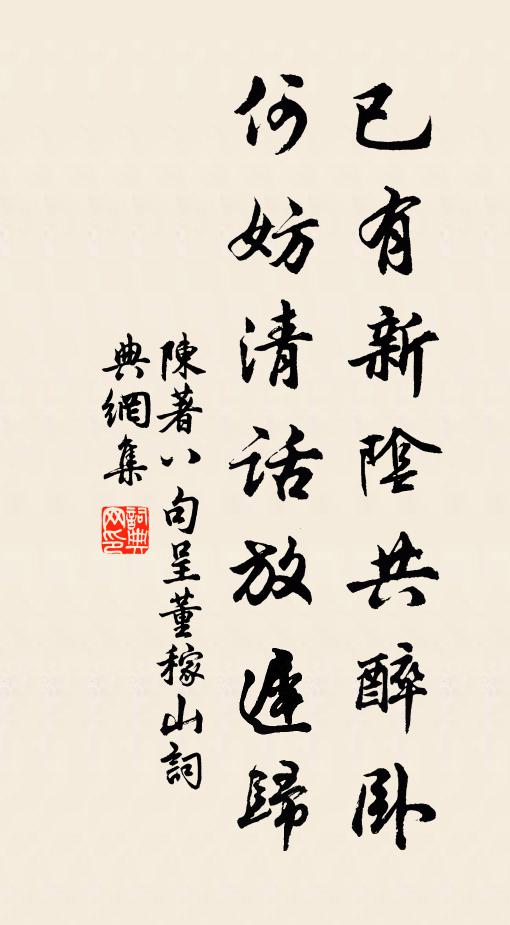 已有新陰共醉臥
何妨清話放遲歸
陳著八句呈董稼山詞
典網集
詞典
网印